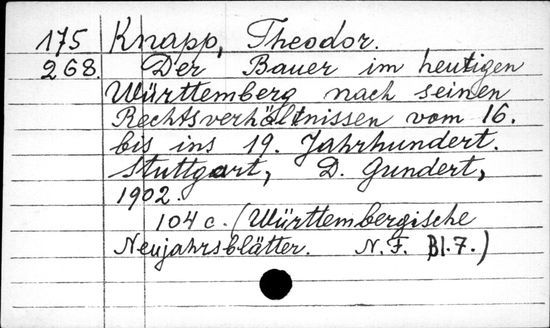 175 Knapp, Theodor.
268. Der Bauer im heutigen
Württemberg nach seinen
Rechtsverhältnissen vom 16.
bis ins 19. Jahrhundert.
Stuttgart, D. Gundert,
1902.
104 c. (Württembergische
Neujahrsblätter. N. F. Bl. 7.)